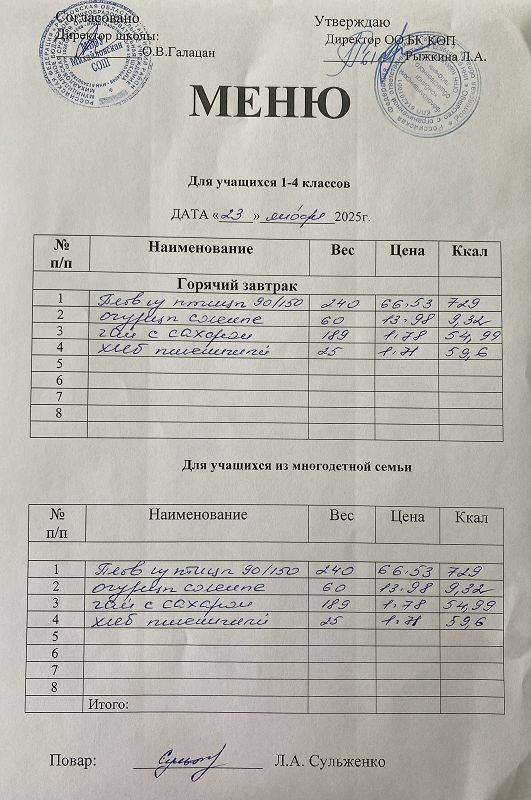 Согласовано Утверждаю
Директор школы: Директор ОО БК КОП
О.В.Галацан Рыжкина Л.А.
МЕНЮ
Для учащихся 1-4 классов
ДАТА «23» января 2025г.
№ п/п Наименование Вес Цена Ккал
Горячий завтрак
1 Плов из птицы 90/150 240 66.53 729
2 огурец соленые 60 13.98 9,32
3 чай с сахаром 189 1.78 54,99
4 хлеб пшеничный 25 1.71 59,6
5
6
7
8
Для учащихся из многодетной семьи
№ п/п Наименование Вес Цена Ккал
1 Плов из птицы 90/150 240 66.53 729
2 огурец соленые 60 13.98 9,32
3 чай с сахаром 189 1.78 54,99
4 хлеб пшеничный 25 1.71 59,6
5
6
7
8
Итого:
Повар: Л.А. Сульженко